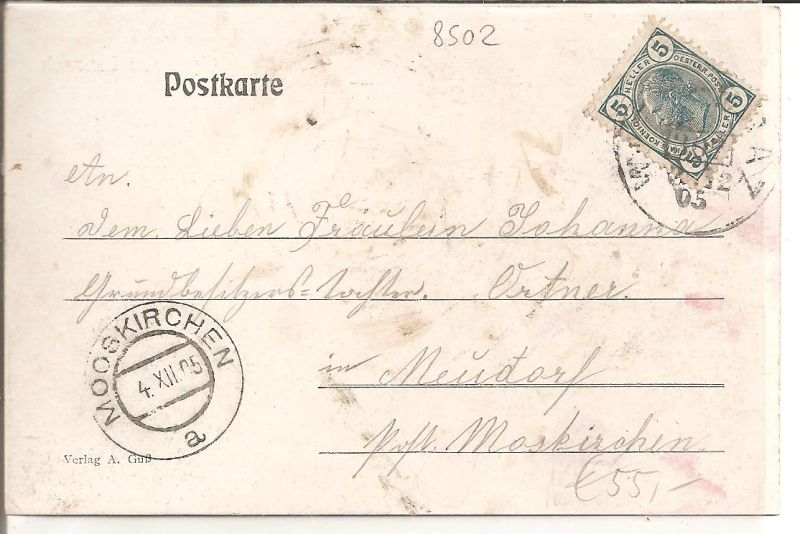 8502
Postkarte
5 HELLER 5
OESTERR. POST
5
GRAZ
12
05
An.
Dem. Lieben Fräulein Johanna
Grundbesitzers-tochter. Ortner.
in Neudorf
Post. Moskirchen
MOOSKIRCHEN
4. XII 05
a
Verlag A. Guß
€55,-